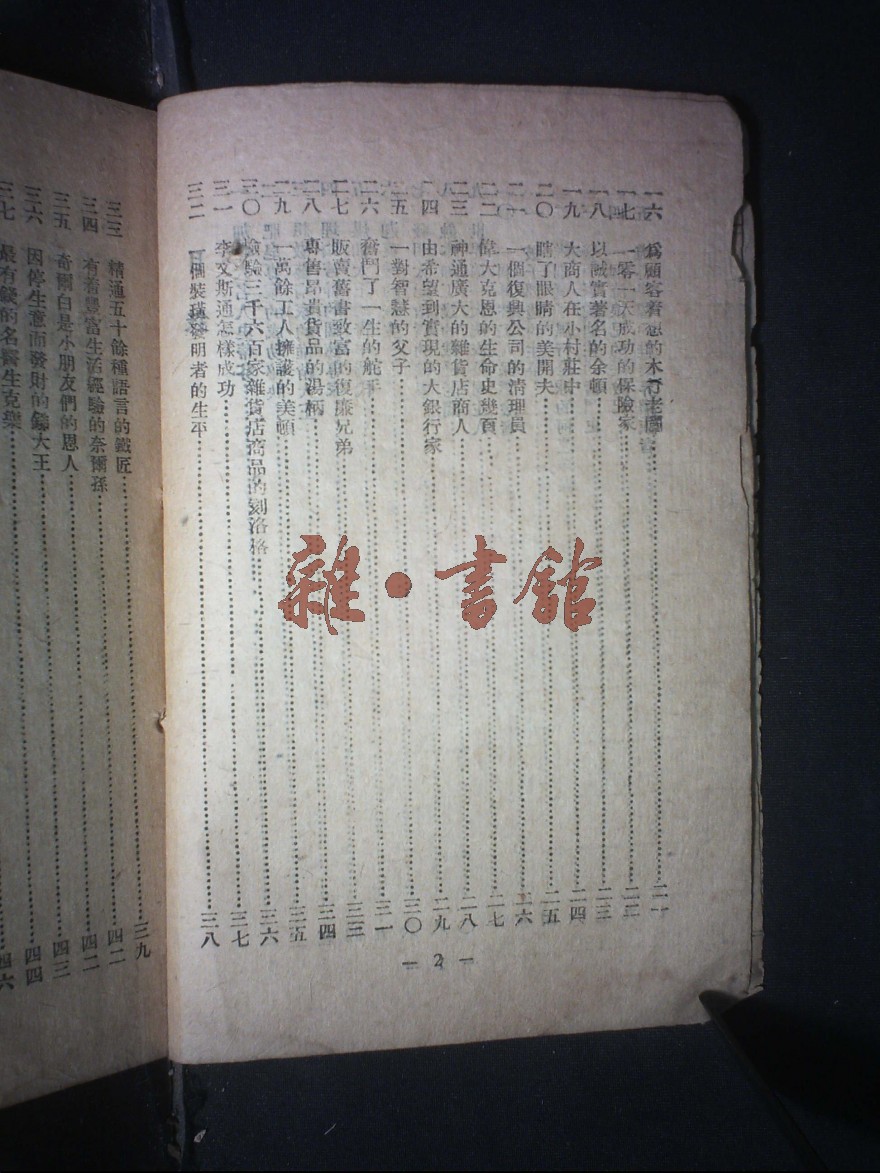 一六 爲顧客着想的木行老闆……二一
一七 一零一天成功的保險家……二二
一八 以誠實著名的余頓……二三
一九 大商人在小村莊中……二四
二〇 瞎了眼睛的美開夫……二五
二一 一個復興公司的清理員……二六
二二 偉大克恩的生命史幾頁……二七
二三 神通廣大的雜貨店商人……二八
二四 由希望到實現的大銀行家……二九
二五 一對智慧的父子……三〇
二六 奮鬥了一生的舵平……三一
二七 販賣舊書致富的復廉兄弟……三三
二八 專售昂貴貨品的湯柄……三四
二九 一萬餘工人擁護的美頓……三五
三〇 檢驗三千六百家雜貨店商品的刻洛格……三六
三一 李文斯通怎樣成功……三七
三二 一個裝璜發明者的生平……三八
— 2 —
三三 精通五十餘種語言的鐵匠……三九
三四 有着豐富生活經驗的奈爾孫……四二
三五 奇爾白是小朋友們的恩人……四三
三六 因停生意而發財的鏽大王……四四
三七 最有錢的名醫生克樂……四六
雜·書館